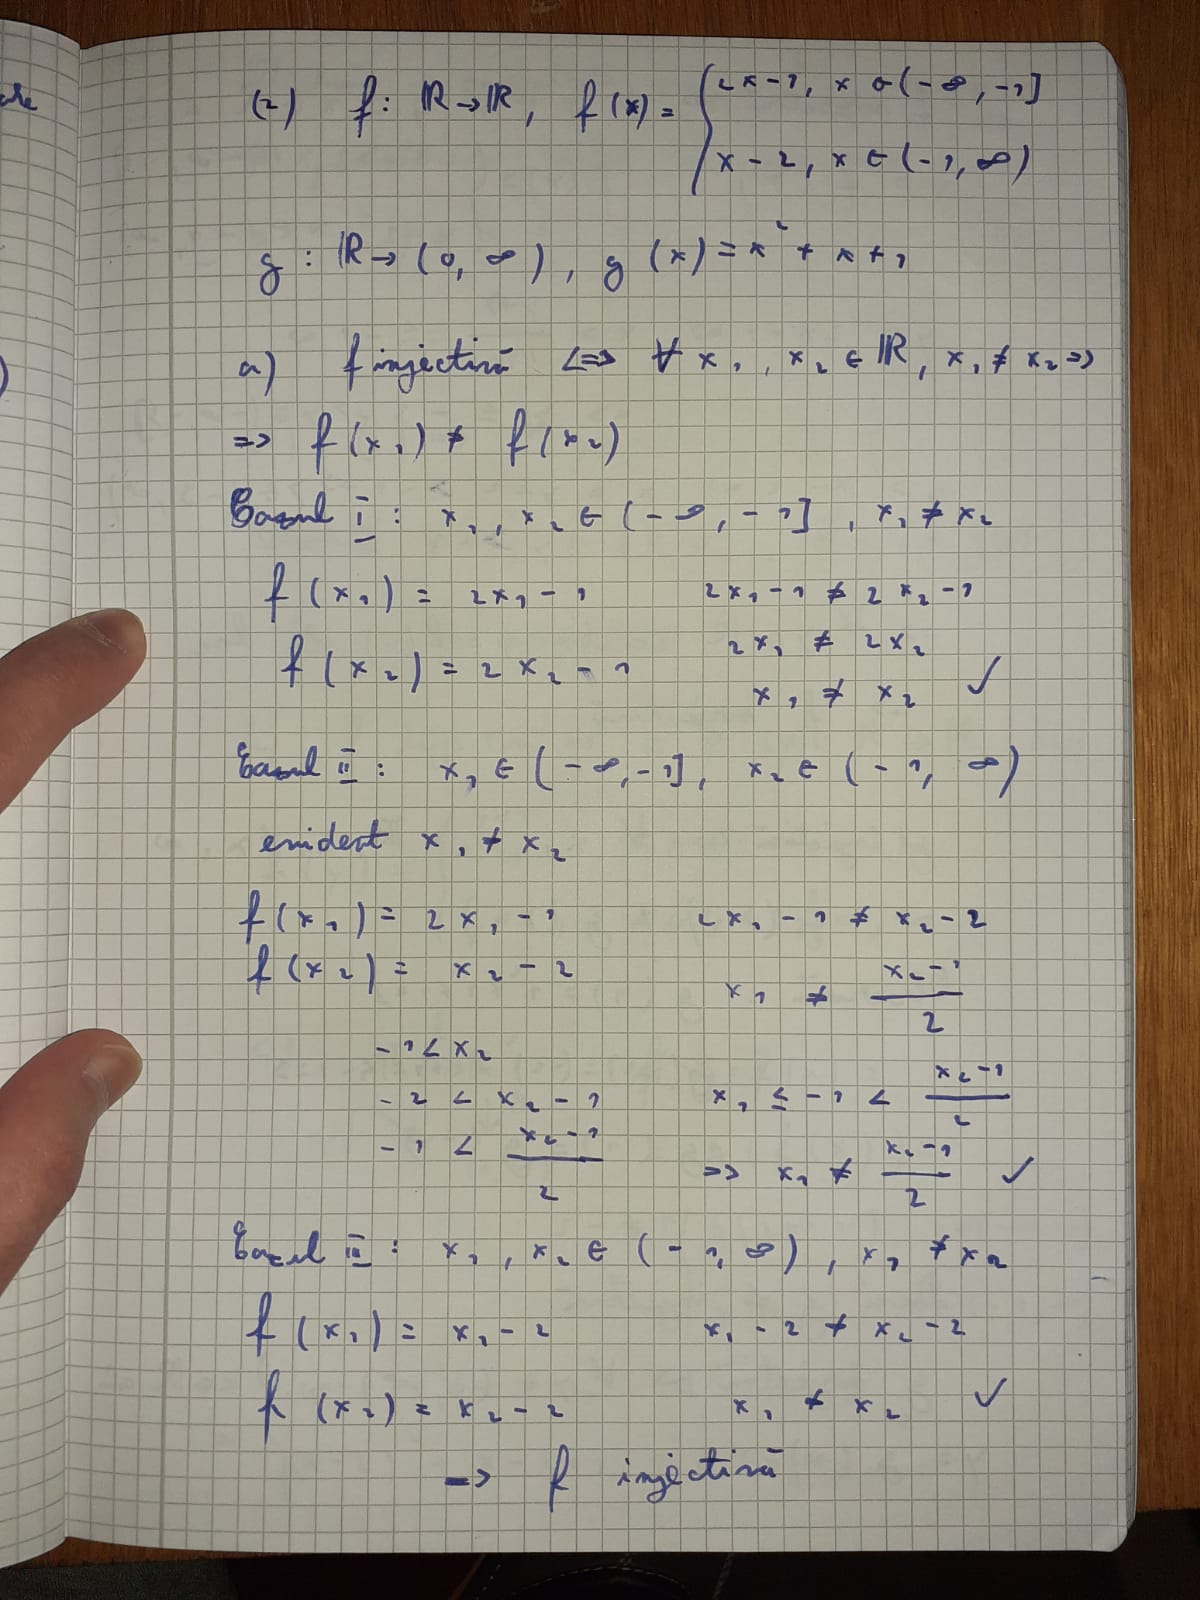 (2) f: ℝ→ℝ, f(x) = { 2x-1, x ∈ (-∞, -1]
x - 2, x ∈ (-1, ∞)
g : ℝ→ (0, ∞), g (x) = x² + x + 1
a) f injectivă <=> ∀ x₁, x₂ ∈ ℝ, x₁ ≠ x₂ =>
=> f(x₁) ≠ f(x₂)
Cazul I : x₁, x₂ ∈ (-∞, -1], x₁ ≠ x₂
f(x₁) = 2x₁ - 1 2x₁ - 1 ≠ 2x₂ - 1
2x₁ ≠ 2x₂
f(x₂) = 2x₂ - 1
x₁ ≠ x₂ ✓
Cazul II : x₁ ∈ (-∞, -1], x₂ ∈ (-1, ∞)
evident x₁ ≠ x₂
f(x₁) = 2x₁ - 1 2x₁ - 1 ≠ x₂ - 2
f(x₂) = x₂ - 2 x₁ ≠ (x₂ - 1)/2
-1 < x₂
-2 < x₂ - 1 x₁ ≤ -1 < (x₂ - 1)/2
-1 < (x₂ - 1)/2 => x₁ ≠ (x₂ - 1)/2 ✓
Cazul III : x₁, x₂ ∈ (-1, ∞), x₁ ≠ x₂
f(x₁) = x₁ - 2 x₁ - 2 ≠ x₂ - 2
f(x₂) = x₂ - 2 x₁ ≠ x₂ ✓
=> f injectivă